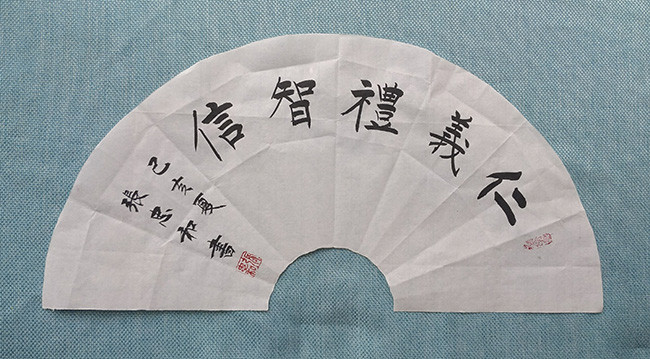 仁義禮智信
己亥夏
張忠和書